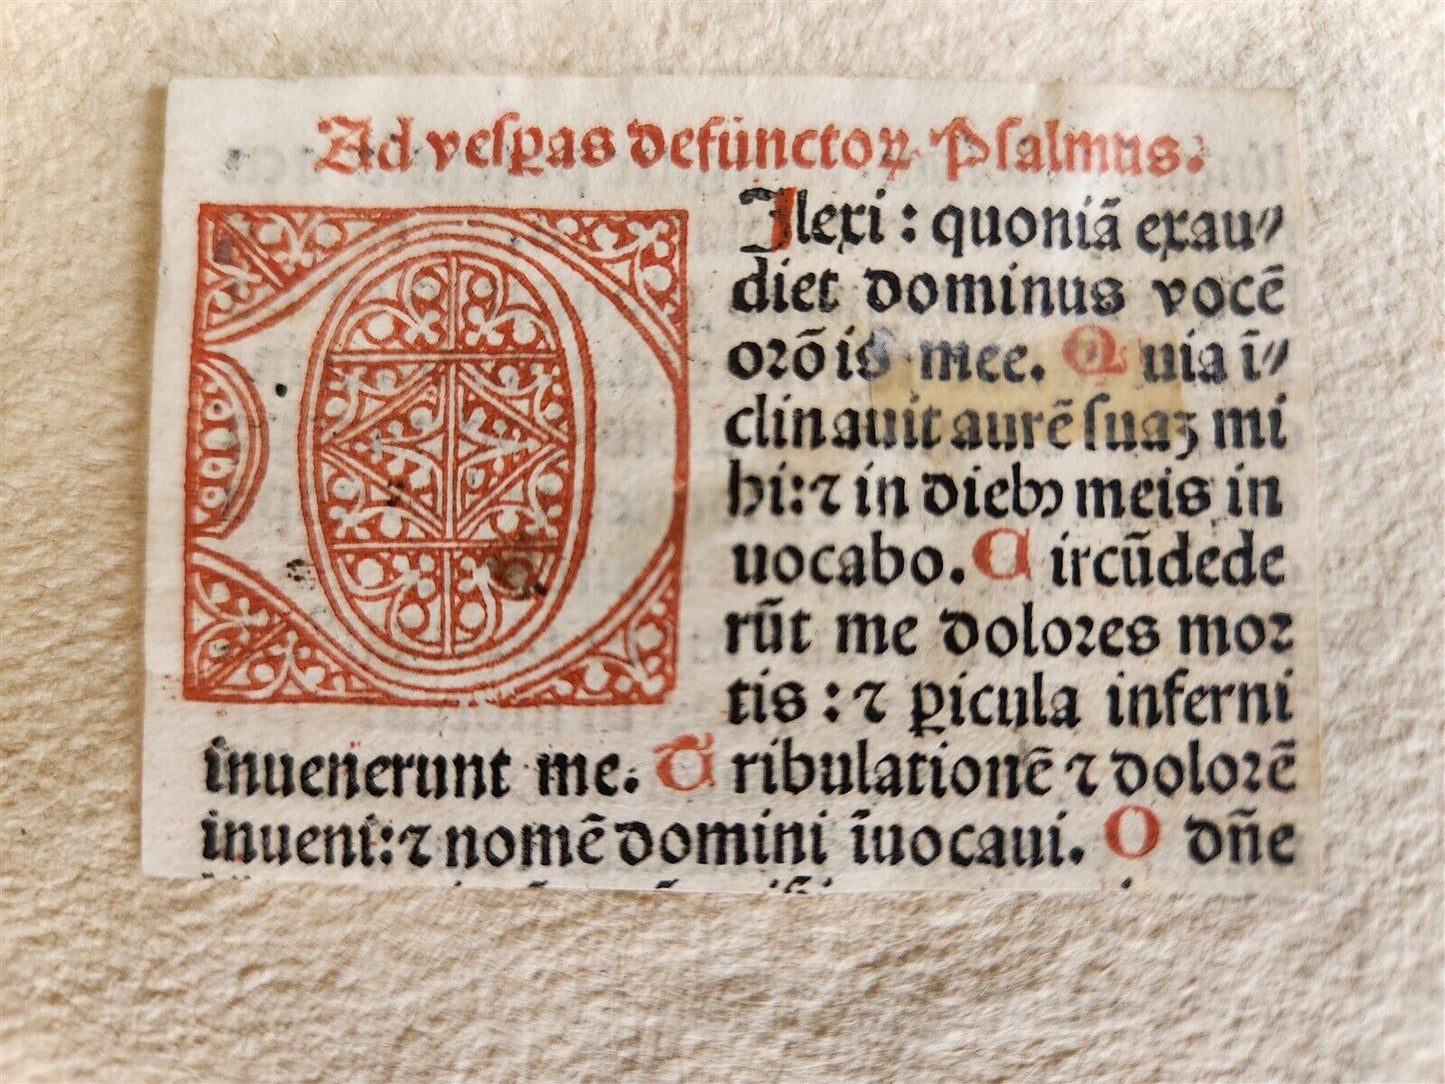 Ad vesꝑas defunctoꝝ Psalmus.
DIlexi : quoniã exau⸗
diet dominus vocẽ
orõis mee. Quia ĩ⸗
clinauit aurẽ suaꝫ mi
hi: ⁊ in diebꝰ meis in
uocabo. Circũdede
rũt me dolores mor
tis : ⁊ ꝑicula inferni
inuenerunt me. Tribulationẽ ⁊ dolorẽ
inueni: ⁊ nomẽ domini ĩuocaui. O dñe